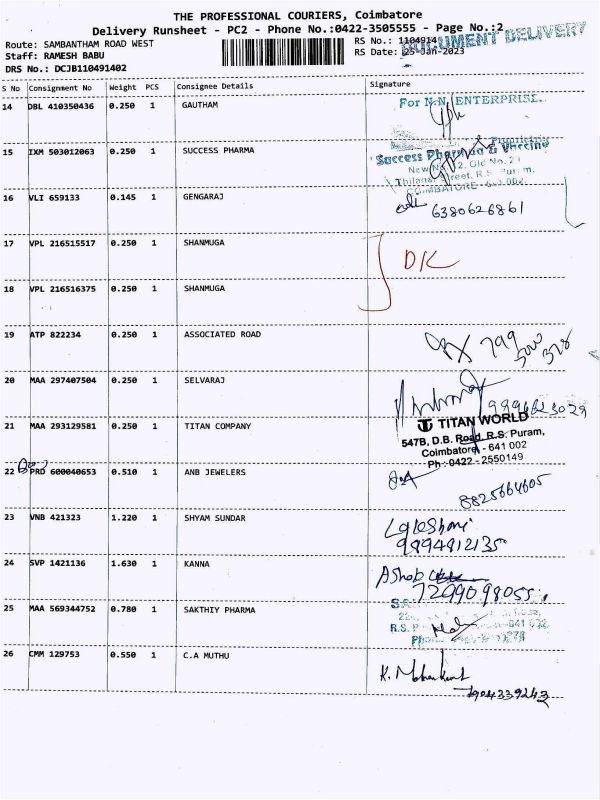 THE PROFESSIONAL COURIERS, Coimbatore
Delivery Runsheet - PC2 - Phone No.:0422-3505555 - Page No.:2
Route: SAMBANTHAM ROAD WEST
Staff: RAMESH BABU
DRS No.: DCJB110491402
RS No.: 1104914
RS Date: 25-Jan-2023
DOCUMENT DELIVERY
S No Consignment No Weight PCS Consignee Details Signature
14 DBL 410350436 0.250 1 GAUTHAM
For N.N. ENTERPRISE
Proprietrix
15 IXM 503012063 0.250 1 SUCCESS PHARMA
Success Pharma & Vaccine
COIMBATORE
16 VLI 659133 0.145 1 GENGARAJ
6380626861
17 VPL 216515517 0.250 1 SHANMUGA
DK
18 VPL 216516375 0.250 1 SHANMUGA
19 ATP 822234 0.250 1 ASSOCIATED ROAD
20 MAA 297407504 0.250 1 SELVARAJ
21 MAA 293129581 0.250 1 TITAN COMPANY
TITAN WORLD
547B, D.B. Road, R.S. Puram,
Coimbatore - 641 002
Ph : 0422 - 2550149
22 PRD 600040653 0.510 1 ANB JEWELERS
8825664605
23 VNB 421323 1.220 1 SHYAM SUNDAR
9894912135
24 SVP 1421136 1.630 1 KANNA
Ashok
7299098055
25 MAA 569344752 0.780 1 SAKTHIY PHARMA
26 CMM 129753 0.550 1 C.A MUTHU